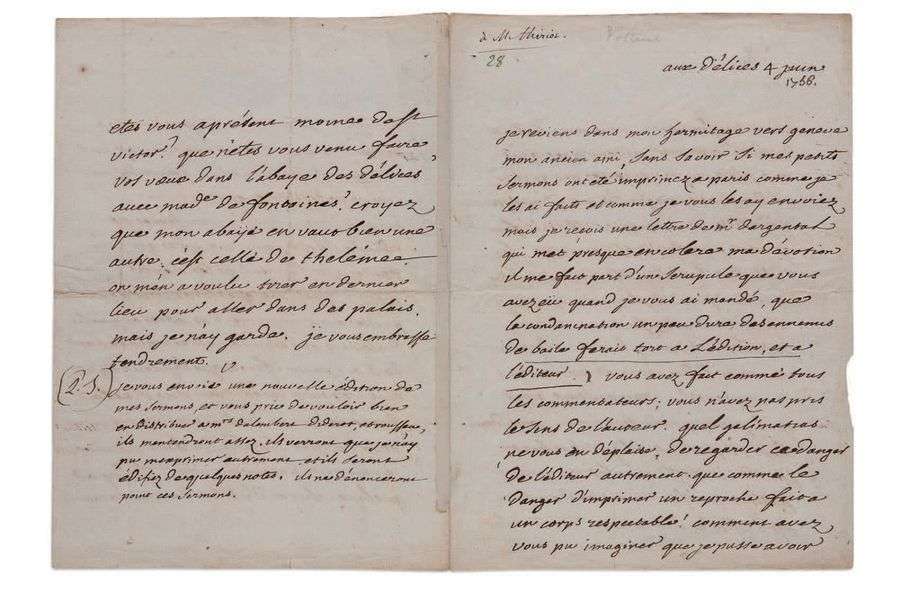 à M. thiriot.
28
Voltaire
aux délices 4 juin
1756.
je reviens dans mon hermitage vers geneve
mon ancien ami, sans savoir si mes petits
sermons ont été imprimez a paris comme je
les ai faits et comme je vous les ay envoiez
mais je reçois une lettre de mr dargental
qui met presque en colere ma dévotion
il me fait part d'un scrupule que vous
avez eu quand je vous ai mandé, que
la condamnation un peu dure des ennemis
de baile ferait tort a L'édition, et a
l'éditeur. vous avez fait comme tous
les commentateurs; vous n'avez pas pris
le sens de l'auteur. quel galimatias
ne vous en déplaise, de regarder ce danger
de l'éditeur autrement que comme le
danger d'imprimer un reproche fait a
un corps respectable! comment avez
vous pu imaginer que je pusse avoir
etes vous aprésent moine de st
victor? que n'etes vous venu faire
vos vœux dans l'abaye des délices
avec made de fontaines? croyez
que mon abaye en vaut bien une
autre. c'est celle de thelême.
on m'en a voulu tirer en dernier
lieu pour aller dans des palais,
mais je n'ay garde. je vous embrasse
tendrement. V
P.S. je vous envoie une nouvelle édition de
mes sermons, et vous prie de vouloir bien
en distribuer a mrs dalembert diderot, et rousseau,
ils m'entendront assez. ils verront que je n'ay
pu m'exprimer autrement, et ils seront
édifiez de quelques notes. ils ne dénonceront
point ces sermons.